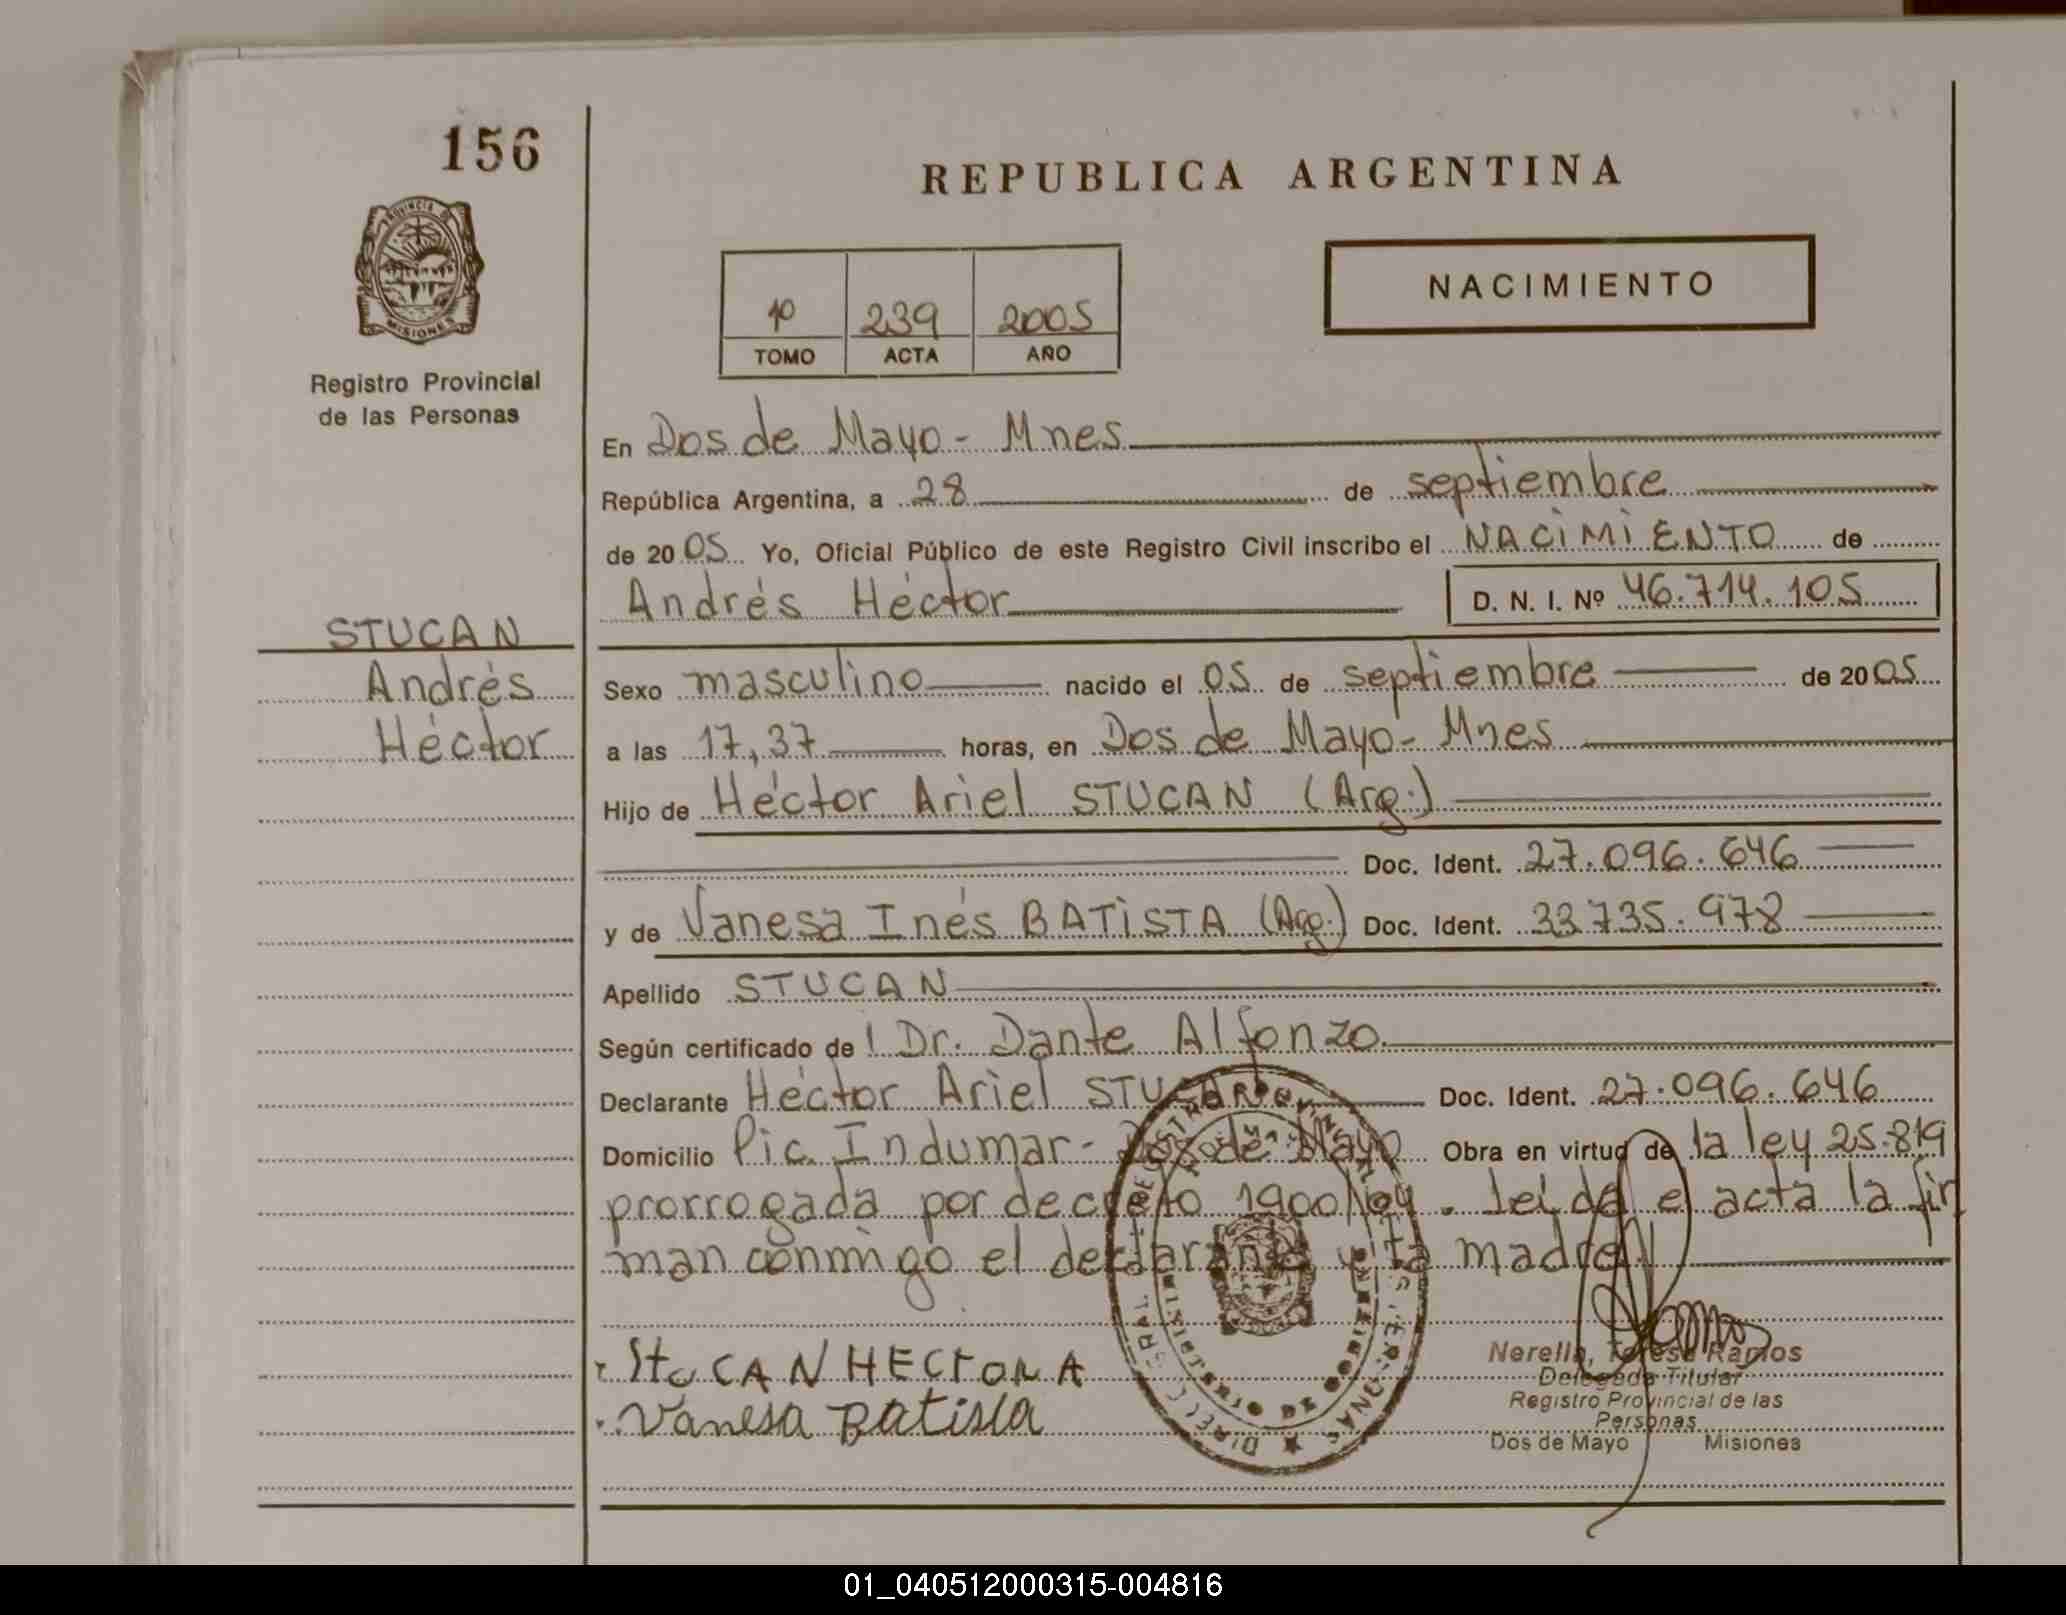 156
REPUBLICA ARGENTINA
PROVINCIA DE
MISIONES
Registro Provincial
de las Personas
1º 239 2005
TOMO ACTA AÑO
NACIMIENTO
En Dos de Mayo - Mnes
República Argentina, a 28 de septiembre
de 2005 Yo, Oficial Público de este Registro Civil inscribo el NACIMIENTO de
Andrés Héctor D. N. I. Nº 46.714.105
STUCAN
Andrés
Héctor
Sexo masculino nacido el 05 de septiembre de 2005
a las 17,37 horas, en Dos de Mayo - Mnes
Hijo de Héctor Ariel STUCAN (Arg.)
Doc. Ident. 27.096.646
y de Vanesa Inés BATISTA (Arg.) Doc. Ident. 33.735.978
Apellido STUCAN
Según certificado de l Dr. Dante Alfonzo
Declarante Héctor Ariel STUCAN Doc. Ident. 27.096.646
Domicilio Pic. Indumar - Dos de Mayo Obra en virtud de la ley 25.819
prorrogada por decreto 1900/04. Leída el acta la fir
man conmigo el declarante y la madre
StuCAN HECTOR A
Vanesa Batista
Nerella, Teresa Ramos
Delegada Titular
Registro Provincial de las
Personas
Dos de Mayo Misiones
01_040512000315-004816